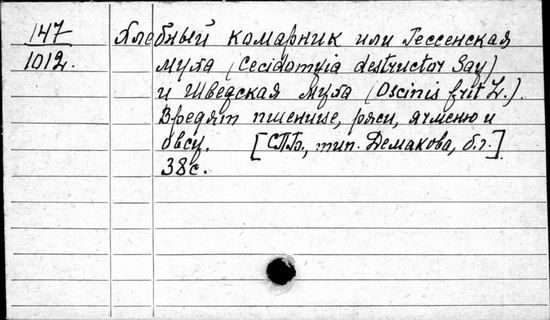 147 Хлебный комарник или Гессенская
1012. муха (Cecidomyia destructor Say)
и Шведская муха (Oscinis frit L.).
Вредят пшенице, ржи, ячменю и
овсу. [СПБ, тип. Демакова, б.г.]
38с.